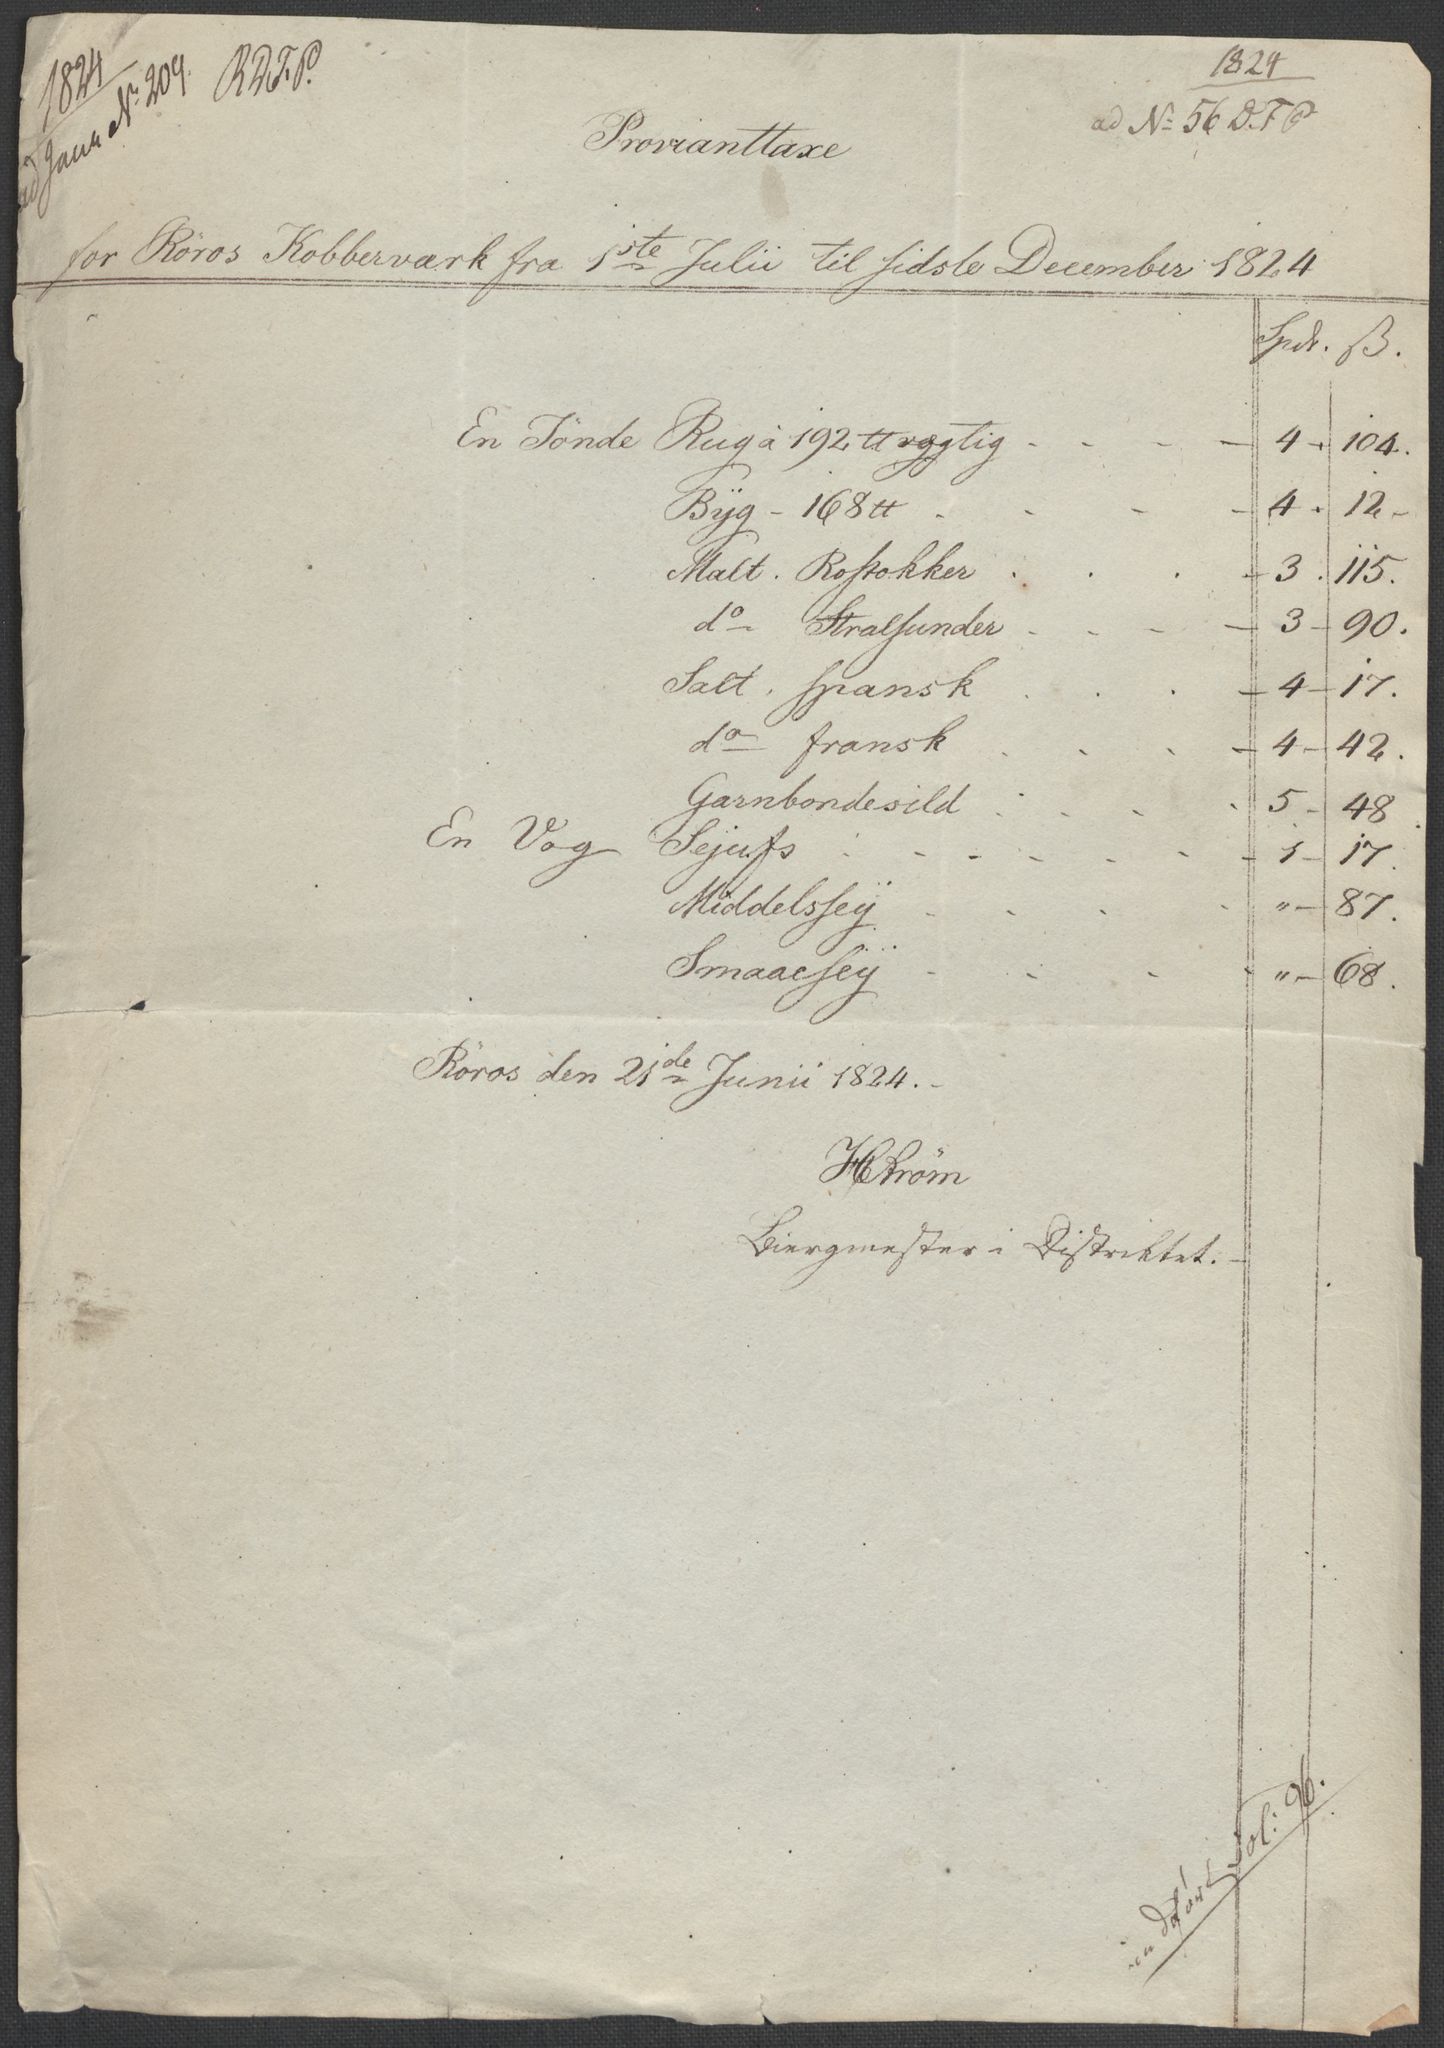 1824
ad Jour N: 209 RDTP.
1824
ad N: 56 D.T P
Provianttaxe
for Röros Kobberværk fra 1ste Julii til sidste December 1824
Spdr. ß.
En Tönde Rug à 192 tt vægtig - - - - 4 - 104.
Bÿg - 168 tt - - - - 4 - 12 -
Malt. Rostokker . . . - 3 . 115.
do Stralsunder - - - - 3 - 90.
Salt. spansk . . . - 4 - 17.
do fransk . . . - 4 - 42.
Garnbondesild . . . . 5 - 48
En Vog Sejufs . - - - - - - 1 - 17.
Middelsseÿ - - - - " - 87.
Smaaeseÿ - - - - " - 68.
Röros den 21de Junii 1824. -
HStröm
Biergmester i Distriktet. -
indført Fol: 96.